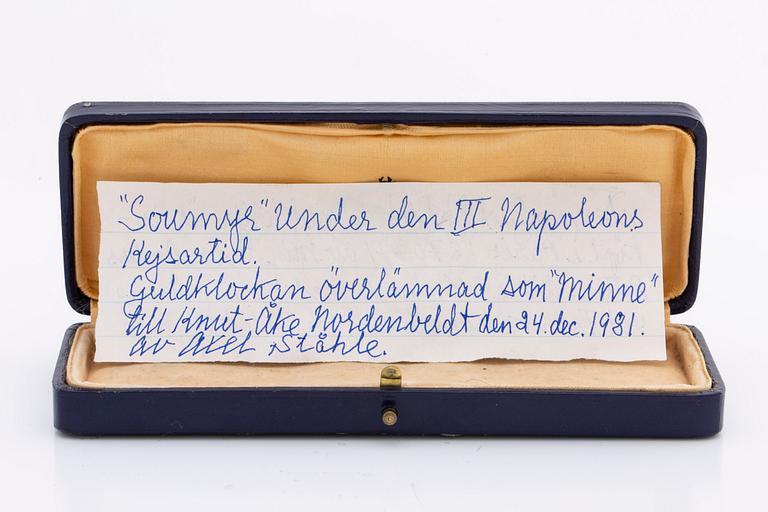 "Soumyr" Under den III Napoleons
Kejsartid.
Guldklockan överlämnad som "Minne"
till Knut-Åke Nordenbeldt den 24. dec. 1981.
av Axel Ståhle.